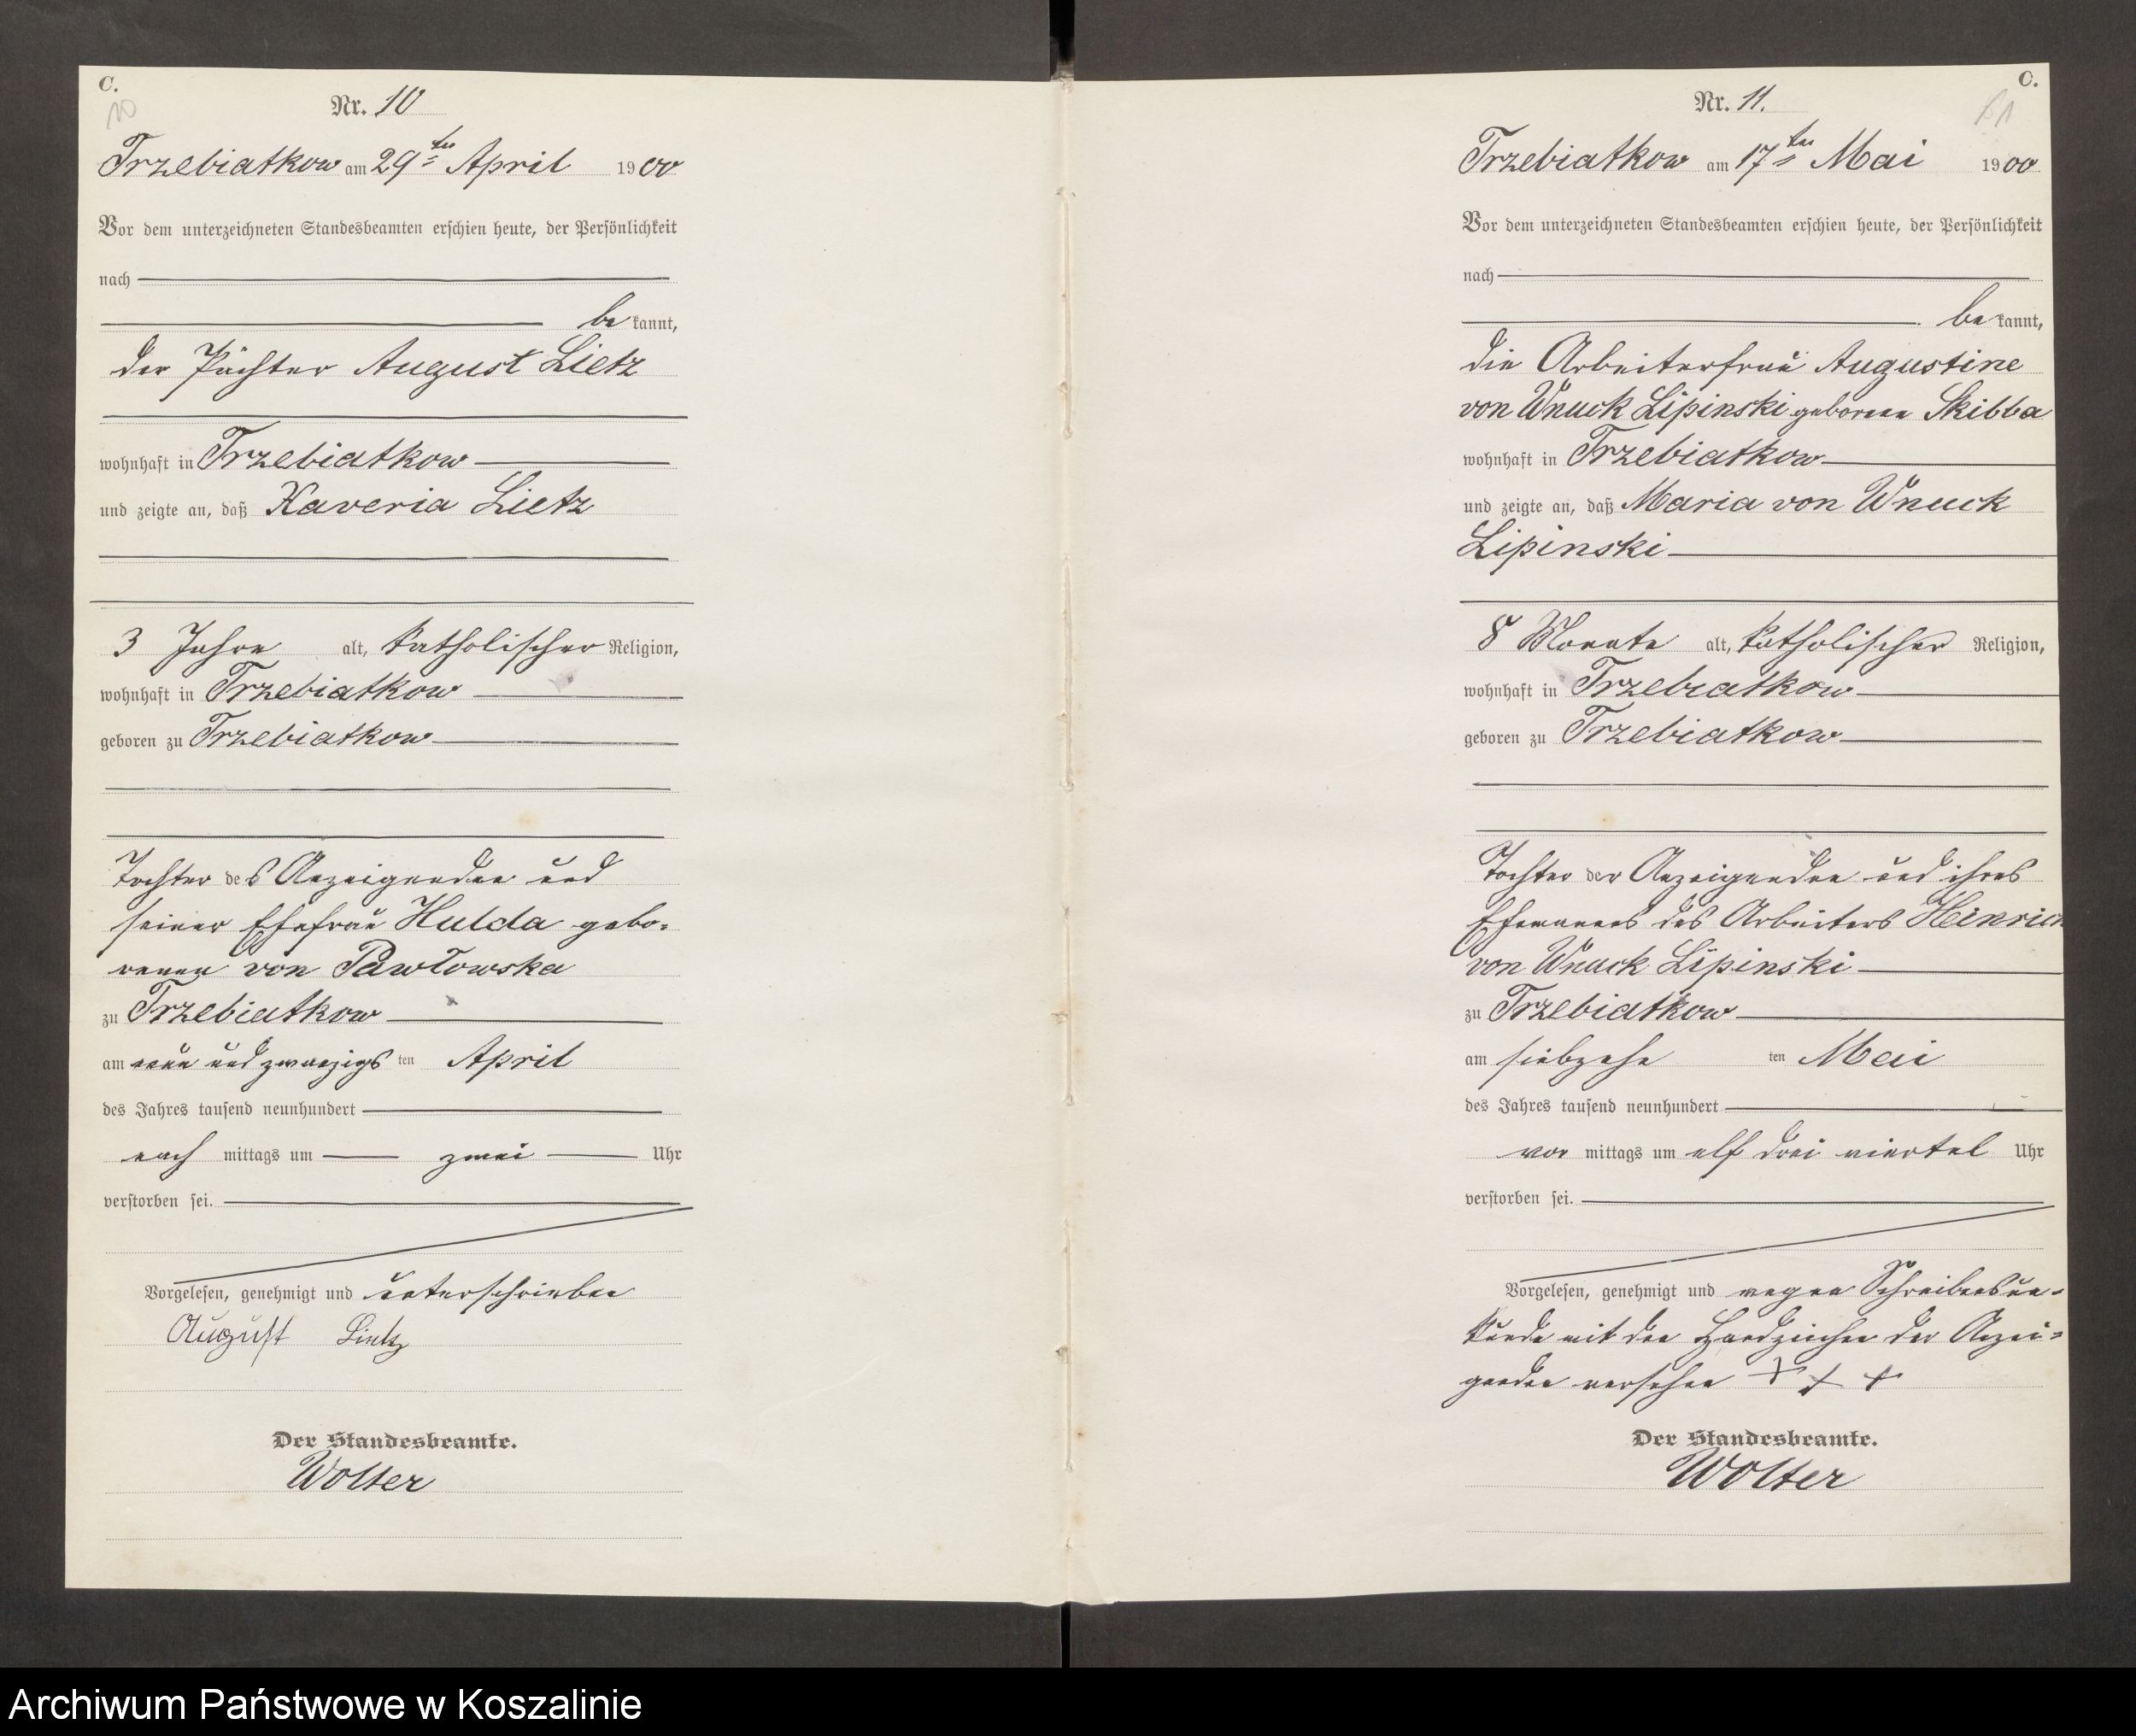 C.
10
Nr. 10
Trzebiatkow am 29ten April 1900
Vor dem unterzeichneten Standesbeamten erschien heute, der Persönlichkeit
nach
bekannt,
der Pächter August Lietz
wohnhaft in Trzebiatkow
und zeigte an, daß Xaveria Lietz
3 Jahre alt, katholischer Religion,
wohnhaft in Trzebiatkow
geboren zu Trzebiatkow
Tochter des Anzeigenden und
seiner Ehefrau Hulda gebo-
renen von Pawłowska
zu Trzebiatkow
am neun und zwanzigsten April
des Jahres tausend neunhundert
nach mittags um zwei Uhr
verstorben sei.
Vorgelesen, genehmigt und unterschrieben
August Lietz
Der Standesbeamte.
Wolter
C.
11
Nr. 11.
Trzebiatkow am 17ten Mai 1900
Vor dem unterzeichneten Standesbeamten erschien heute, der Persönlichkeit
nach
bekannt,
die Arbeiterfrau Augustine
von Wnuck Lipinski geborene Skibba
wohnhaft in Trzebiatkow
und zeigte an, daß Maria von Wnuck
Lipinski
8 Monate alt, katholischer Religion,
wohnhaft in Trzebiatkow
geboren zu Trzebiatkow
Tochter der Anzeigenden und ihres
Ehemannes des Arbeiters Heinrich
von Wnuck Lipinski
zu Trzebiatkow
am siebzehnten Mai
des Jahres tausend neunhundert
vor mittags um elf drei viertel Uhr
verstorben sei.
Vorgelesen, genehmigt und wegen Schreibensun-
kunde mit den Handzeichen der Anzei-
genden versehen + + +
Der Standesbeamte.
Wolter
Archiwum Państwowe w Koszalinie